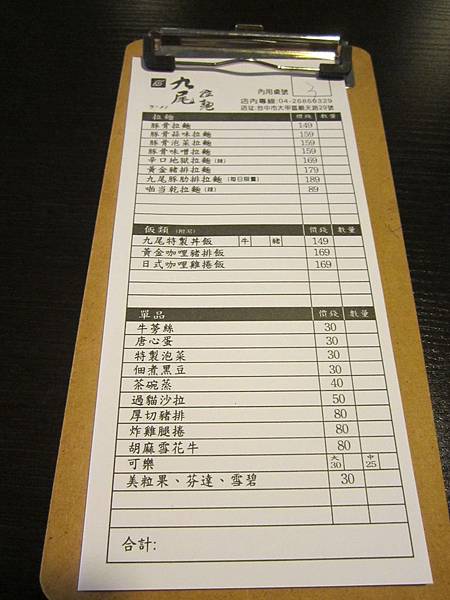 九尾拉麵
內用桌號 3
店內專線:04-26866329
店址:台中市大甲區順天路29號
拉麵 價錢 數量
豚骨拉麵 149
豚骨蒜味拉麵 159
豚骨泡菜拉麵 159
豚骨味噌拉麵 159
辛口地獄拉麵(辣) 169
黃金豬排拉麵 179
九尾豚肋排拉麵(每日限量) 189
啪当乾拉麵(辣) 89
飯類(附湯) 價錢 數量
九尾特製丼飯 牛 豬 149
黃金咖哩豬排飯 169
日式咖哩雞捲飯 169
單品 價錢 數量
牛蒡絲 30
唐心蛋 30
特製泡菜 30
佃煮黑豆 30
茶碗蒸 40
過貓沙拉 50
厚切豬排 80
炸雞腿捲 80
胡麻雪花牛 80
可樂 大30 中25
美粒果、芬達、雪碧 30
合計: